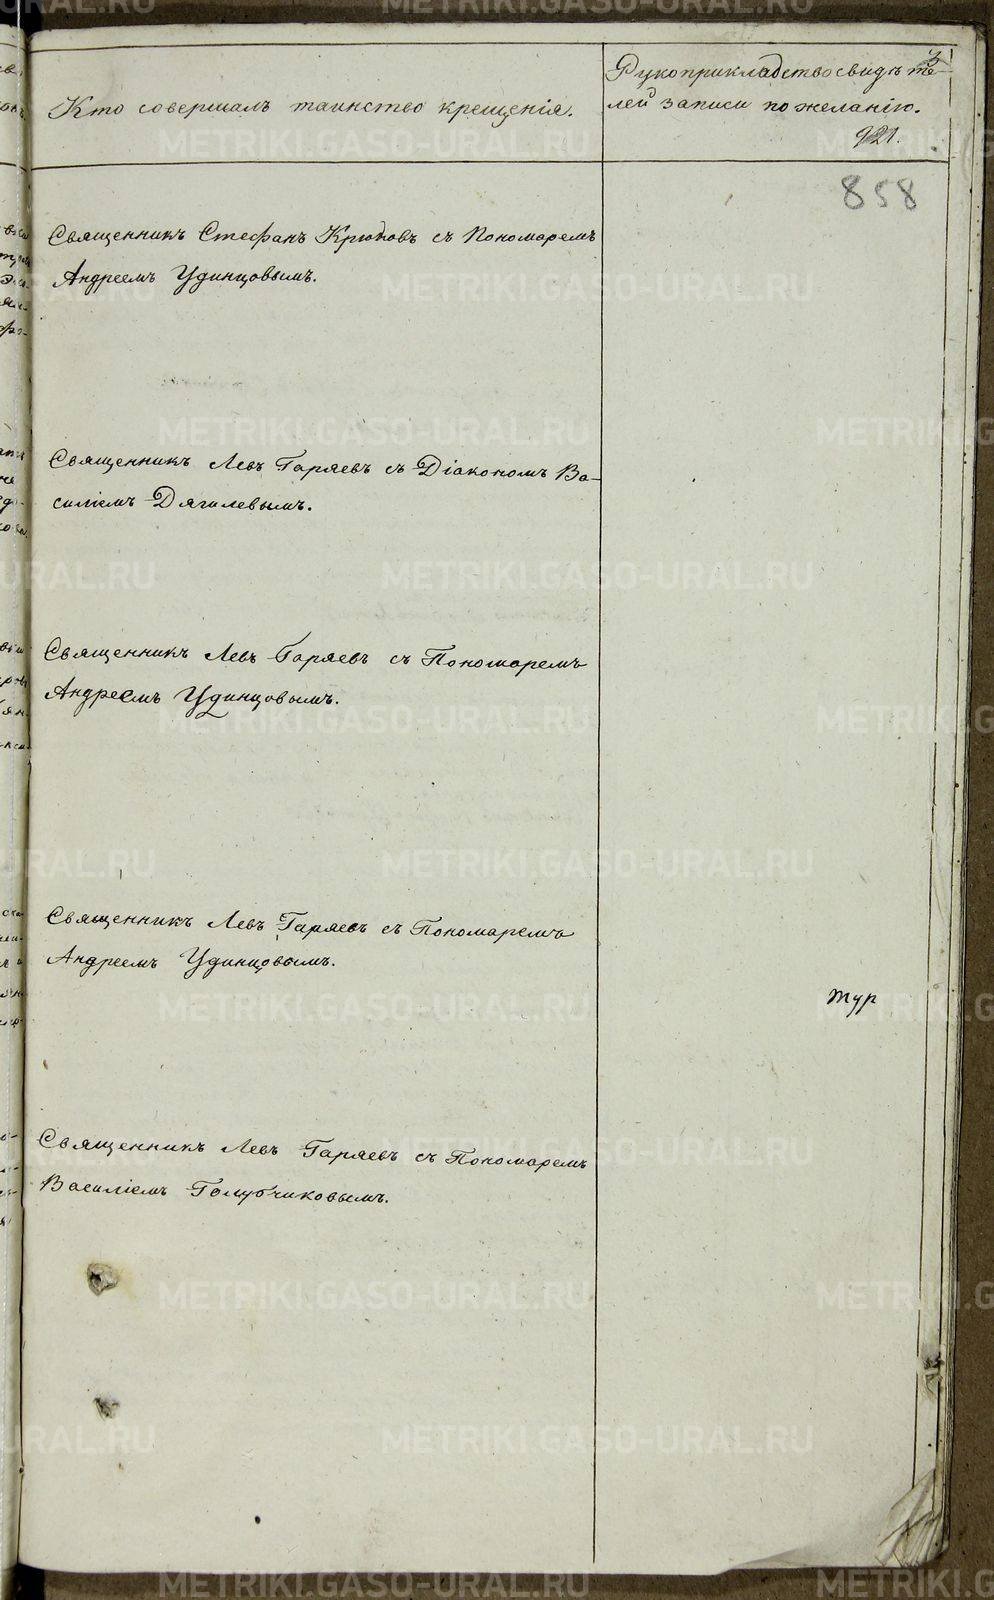 Кто совершалъ таинство крещенія.
Рукоприкладство свидѣте-
лей записи по желанію.
921.
858
Священникъ Стефанъ Крюковъ съ Пономаремъ
Андреемъ Удинцовымъ.
Священникъ Левъ Гаряевъ съ Діакономъ Ва-
силіемъ Дягилевымъ.
Священникъ Левъ Гаряевъ съ Пономаремъ
Андреемъ Удинцовымъ.
Священникъ Левъ Гаряевъ съ Пономаремъ
Андреемъ Удинцовымъ.
тур
Священникъ Левъ Гаряевъ съ Пономаремъ
Василіемъ Голубчиковымъ.
METRIKI.GASO-URAL.RU